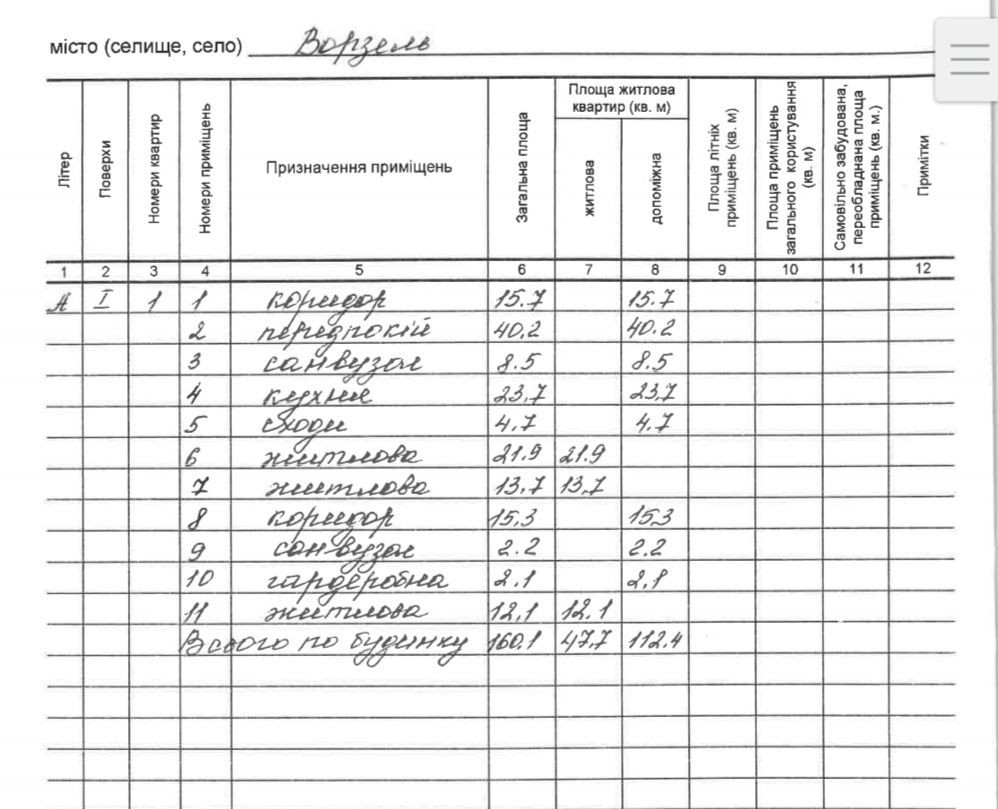 місто (селище, село) Ворзель
Літер
Поверхи
Номери квартир
Номери приміщень
Призначення приміщень
Загальна площа
Площа житлова квартир (кв. м)
житлова
допоміжна
Площа літніх приміщень (кв. м)
Площа приміщень загального користування (кв. м)
Самовільно забудована, переобладнана площа приміщень (кв. м.)
Примітки
1 2 3 4 5 6 7 8 9 10 11 12
А І 1 1 коридор 15.7 15.7
2 передпокій 40,2 40.2
3 санвузол 8.5 8.5
4 кухня 23,7 23,7
5 сходи 4,7 4.7
6 житлова 21.9 21.9
7 житлова 13,7 13,7
8 коридор 15,3 15,3
9 санвузол 2.2 2.2
10 гардеробна 2.1 2,1
11 житлова 12,1 12.1
Всього по будинку 160.1 47,7 112,4